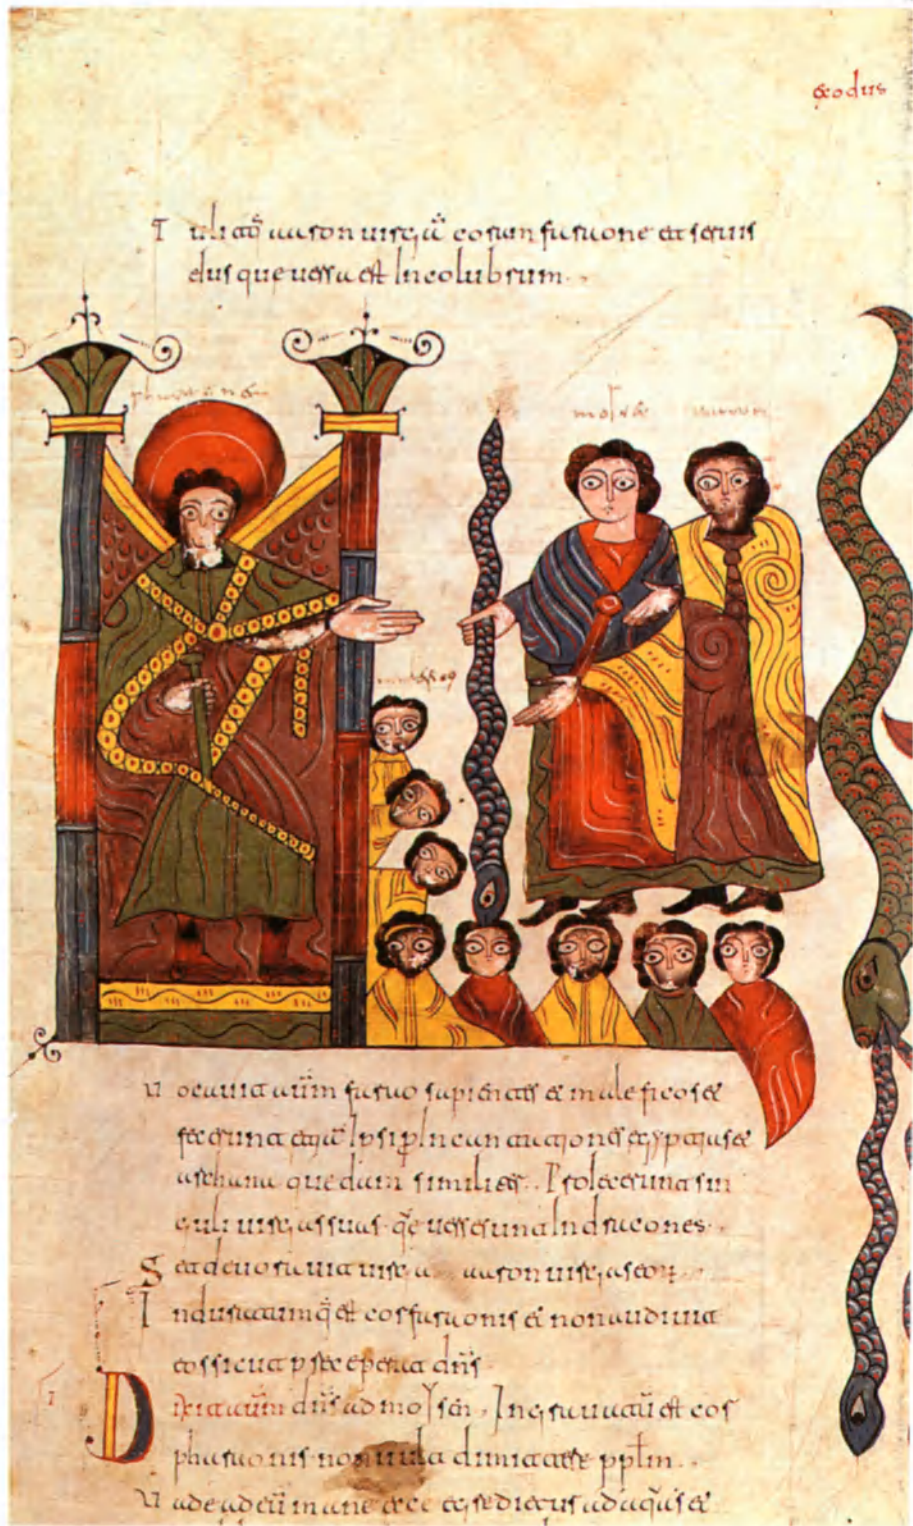 exodus
Tulitq̄ aaron uirgā coram faraone et seruis
eius que uersa est In colubrum.
aaron
Uocauit aūm farao sapientes et maleficos et
fecerunt etiā Ipsi ꝑ Incantationes egyptias et
archana quedam similiter. Proiecerunt sin
guli uirgas suas. q̄ uerse sunt In dracones.
Sed deuorauit uirga aaron uirgas eorꝝ.
Induratumq̄ est cor faraonis et non audiuit
eos sicut preceperat dn̄s.
Dixit aūm dn̄s ad moysen. Ingrauatū est cor
pharaonis non uult dimittere pplm.
Uade ad eū mane ecce egredietur ad aquas et